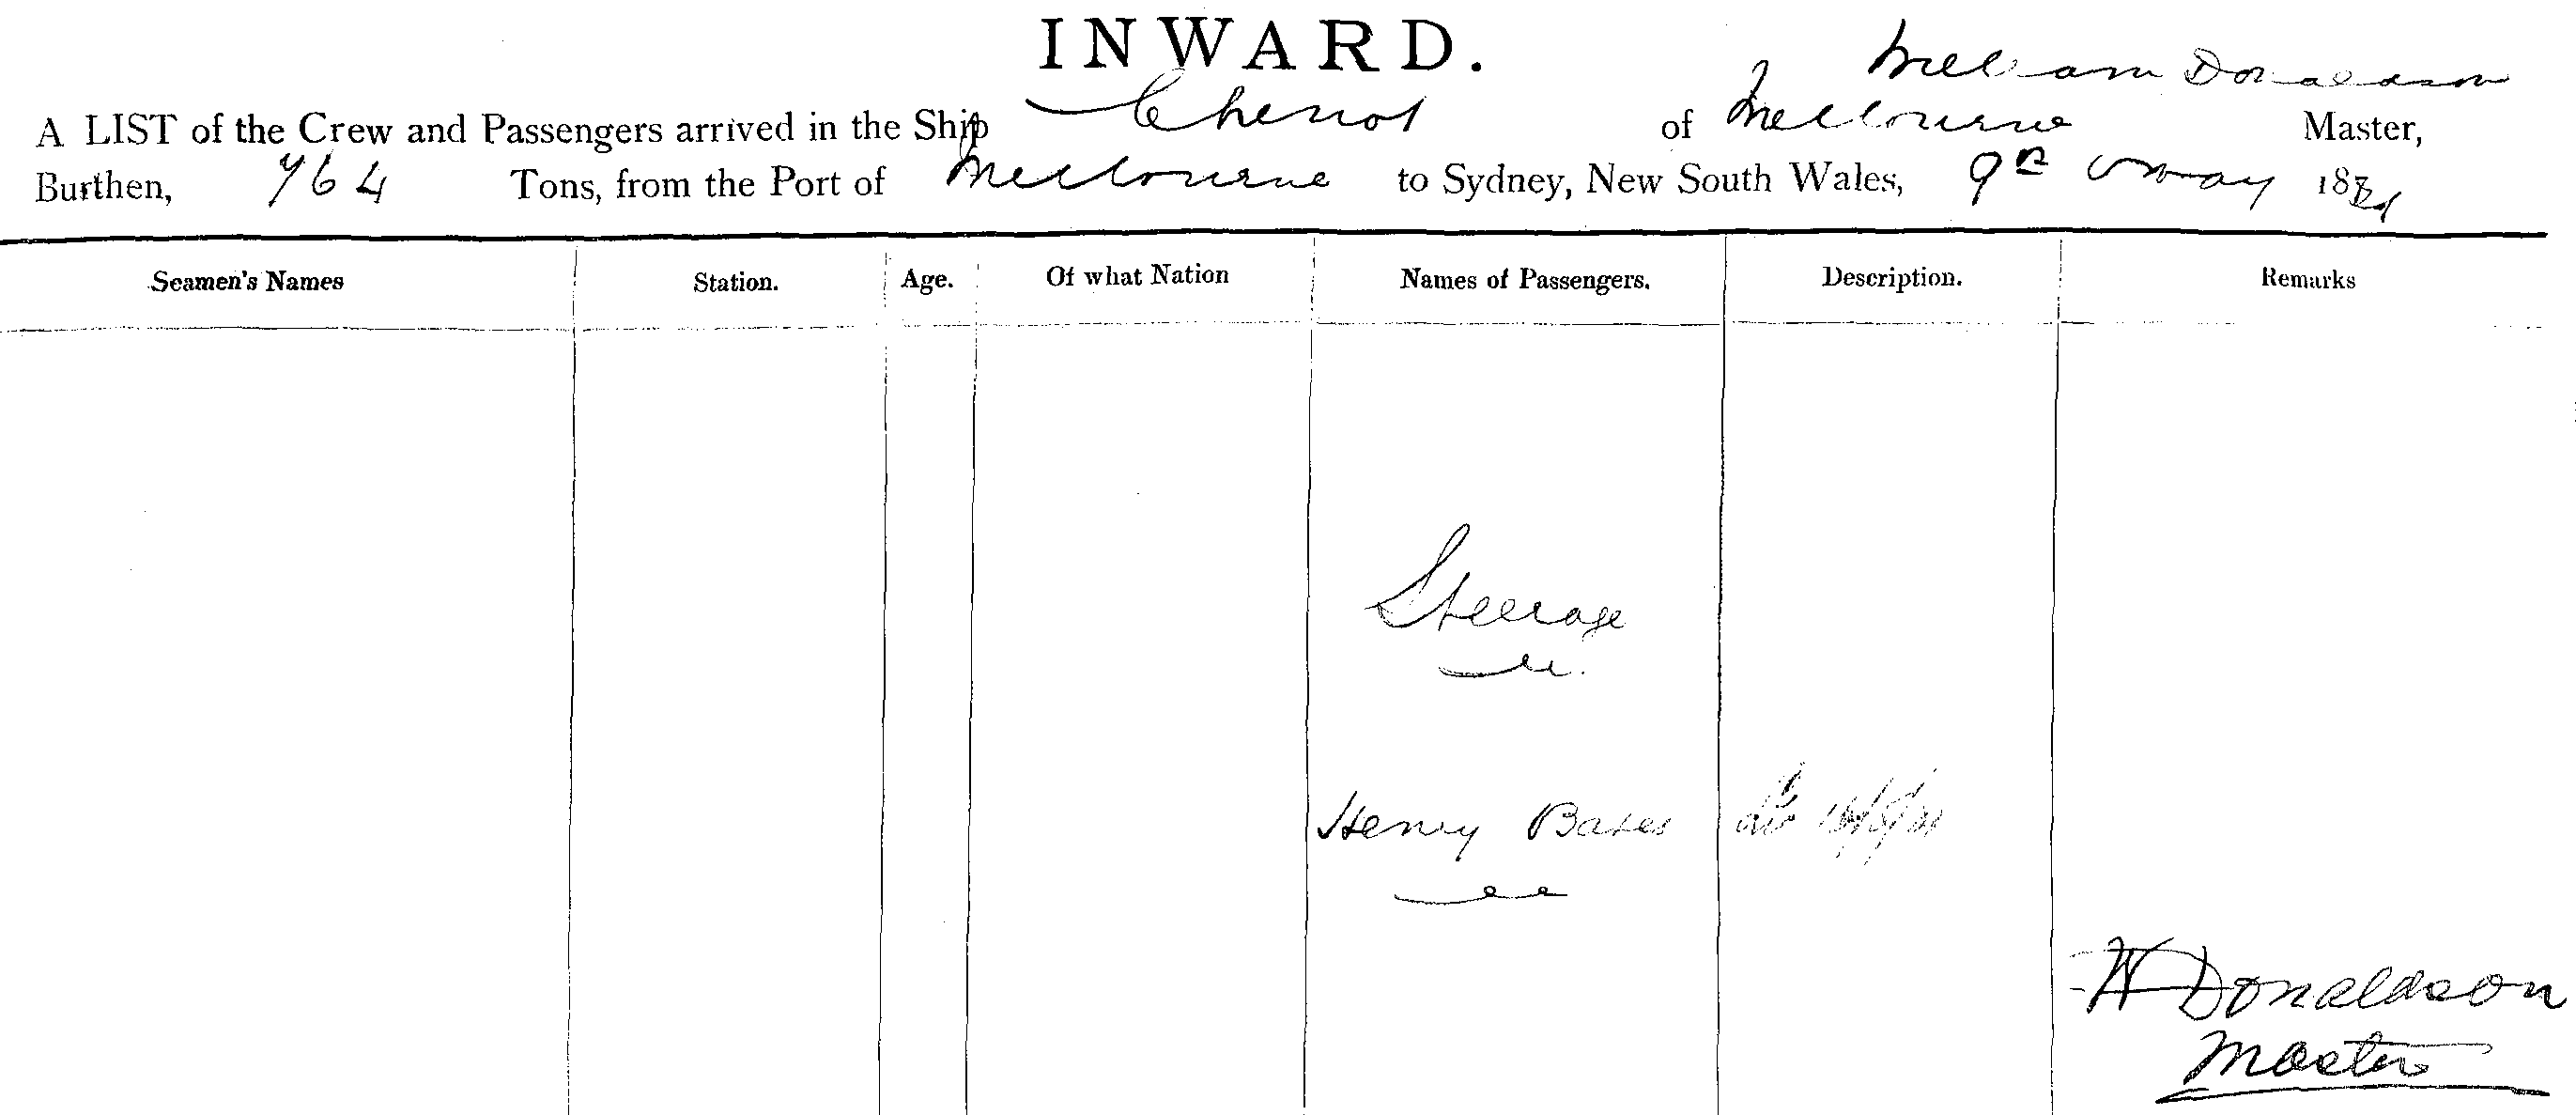 INWARD.
William Donaldson
A LIST of the Crew and Passengers arrived in the Ship Cheviot of Melbourne Master,
Burthen, 764 Tons, from the Port of Melbourne to Sydney, New South Wales, 9th May 18
Seamen's Names Station. Age. Of what Nation Names of Passengers. Description. Remarks
Steerage
Henry Bates
W Donaldson
Master